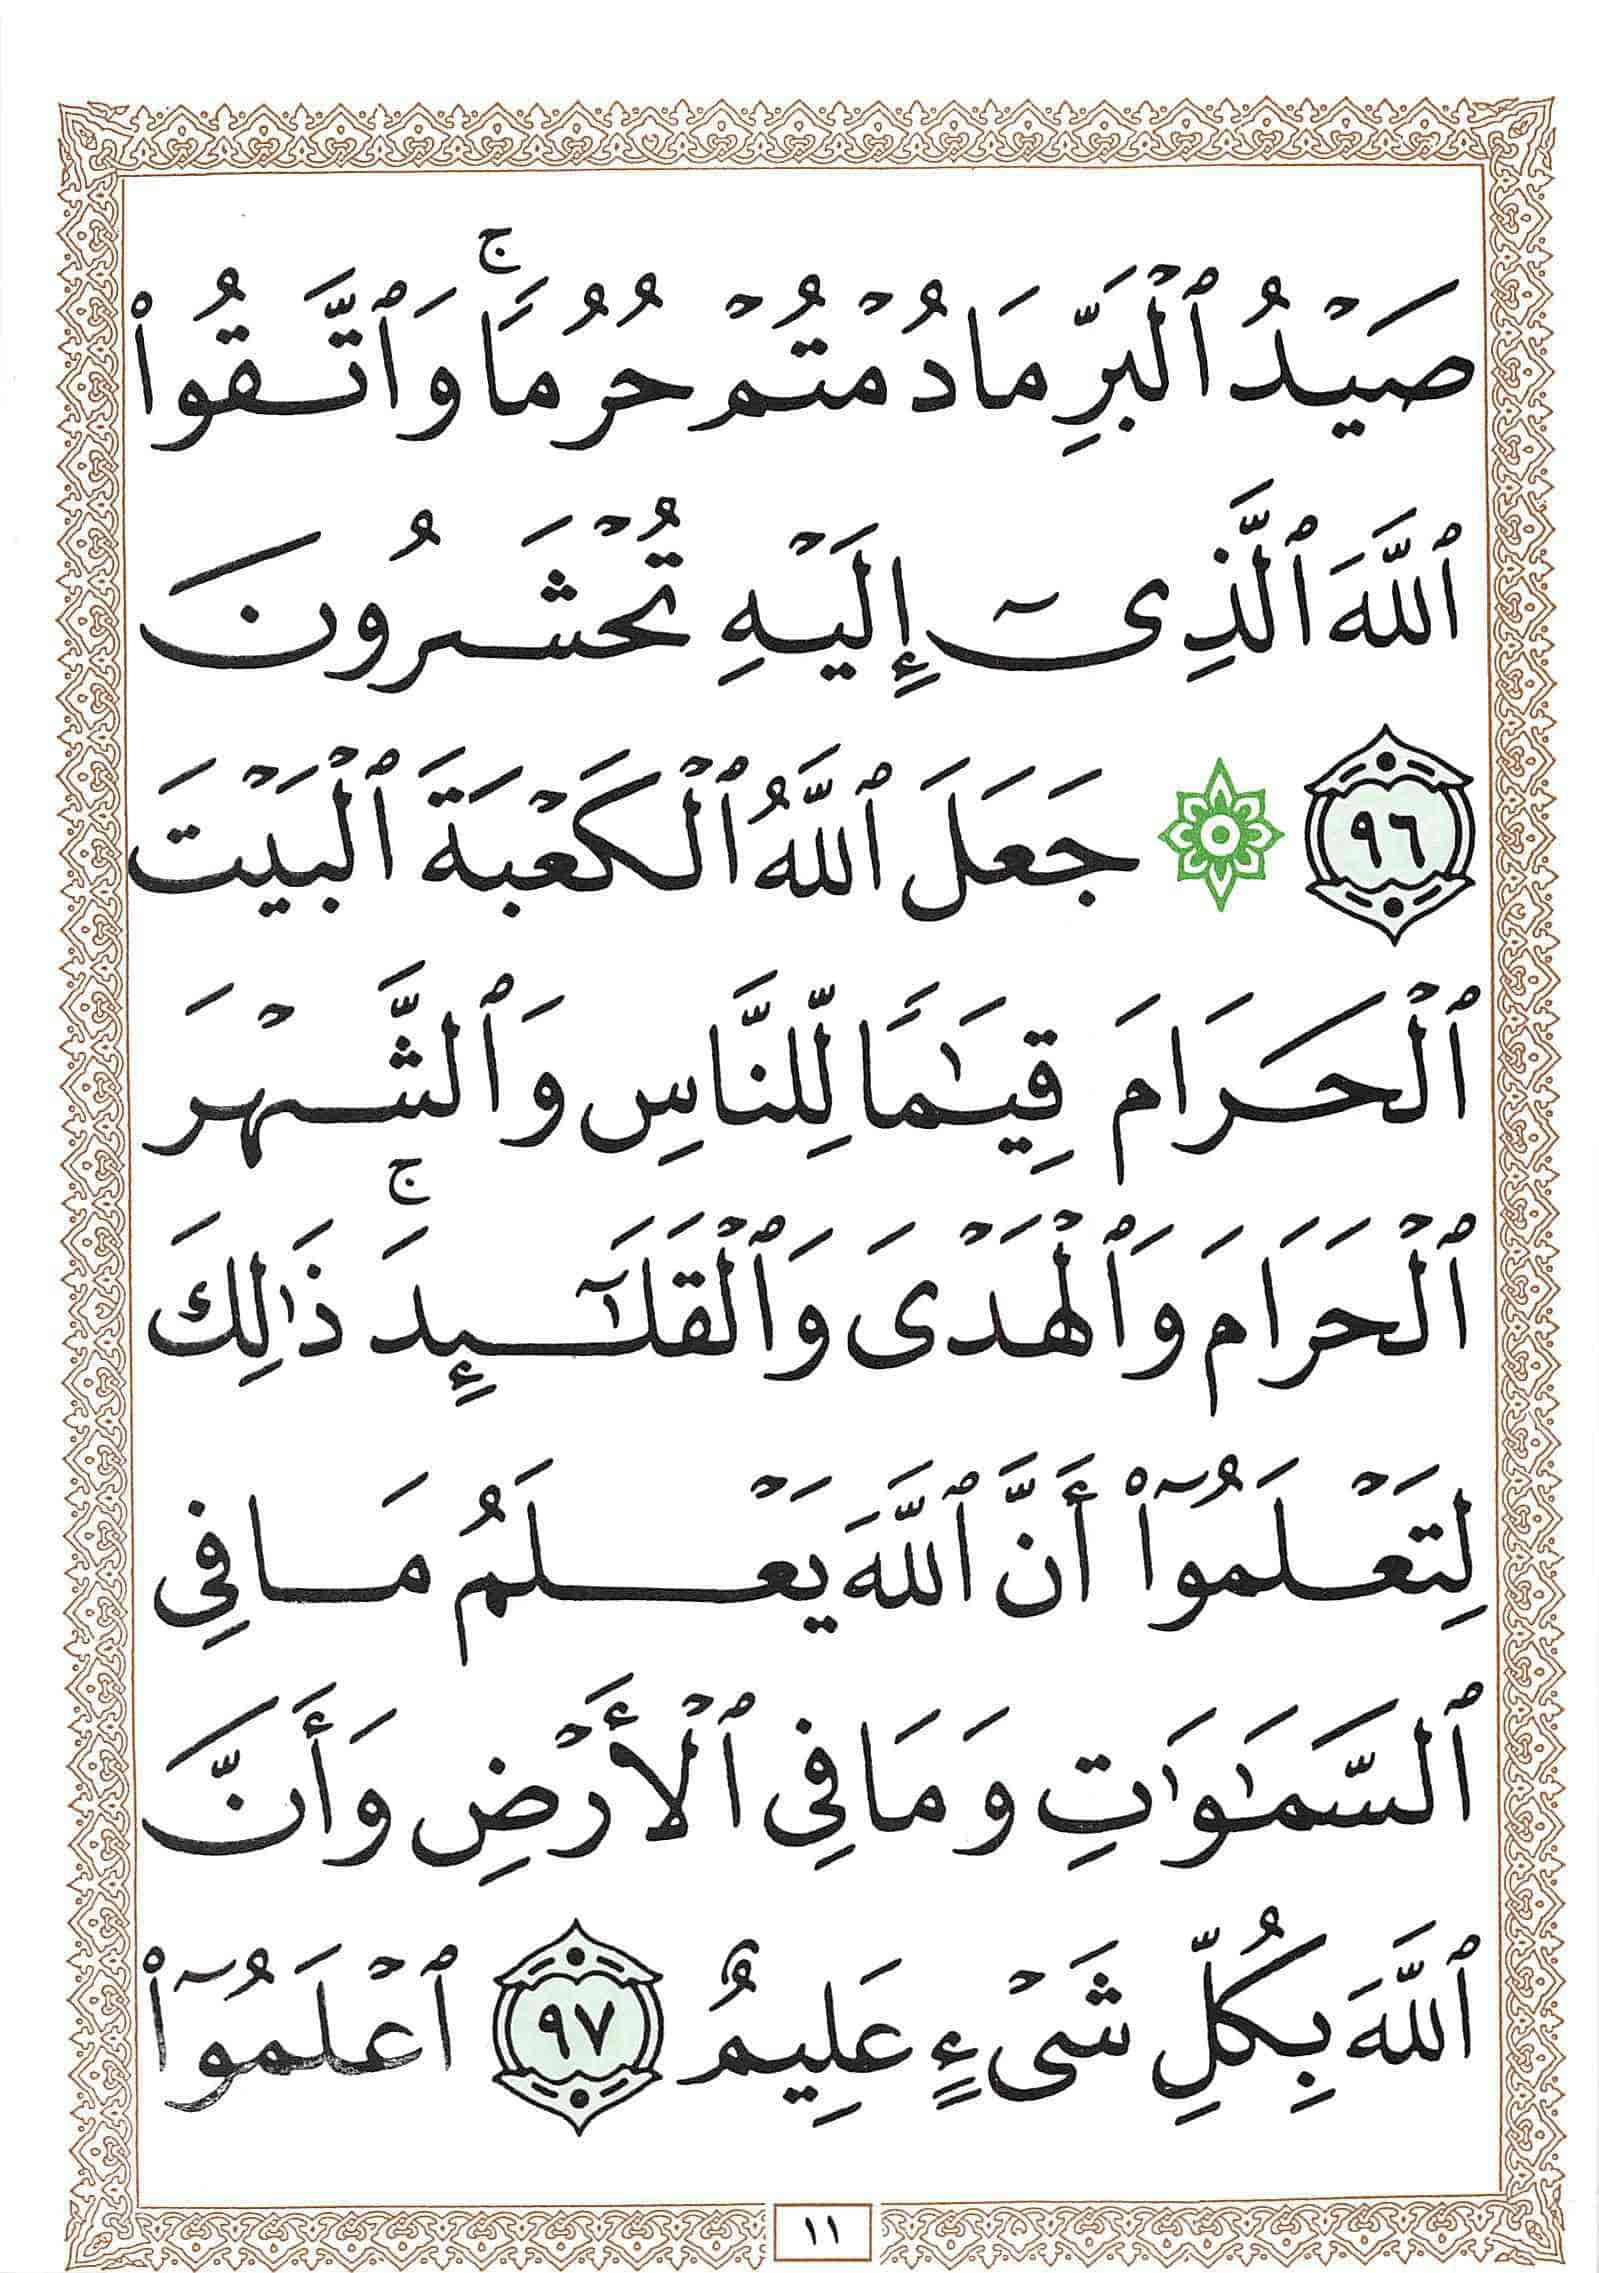 صَيْدُ ٱلْبَرِّ مَا دُمْتُمْ حُرُمًا ۚ وَٱتَّقُوا۟
ٱللَّهَ ٱلَّذِىٓ إِلَيْهِ تُحْشَرُونَ
٩٦ ۞ جَعَلَ ٱللَّهُ ٱلْكَعْبَةَ ٱلْبَيْتَ
ٱلْحَرَامَ قِيَـٰمًا لِّلنَّاسِ وَٱلشَّهْرَ
ٱلْحَرَامَ وَٱلْهَدْىَ وَٱلْقَلَـٰٓئِدَ ۚ ذَٰلِكَ
لِتَعْلَمُوٓا۟ أَنَّ ٱللَّهَ يَعْلَمُ مَا فِى
ٱلسَّمَـٰوَٰتِ وَمَا فِى ٱلْأَرْضِ وَأَنَّ
ٱللَّهَ بِكُلِّ شَىْءٍ عَلِيمٌ ٩٧ ٱعْلَمُوٓا۟
١١